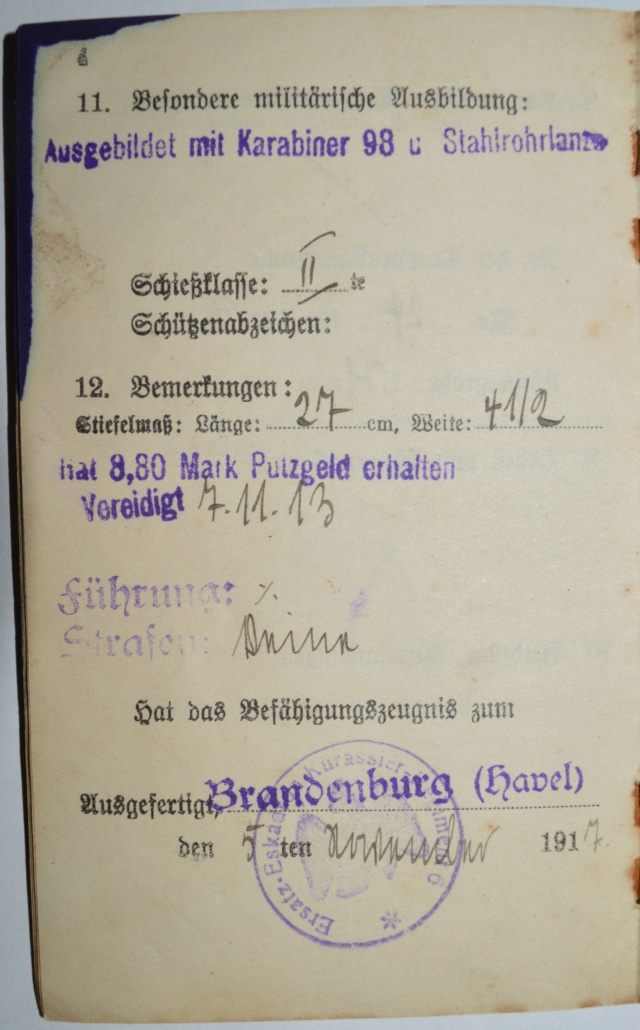 4
11. Besondere militärische Ausbildung:
Ausgebildet mit Karabiner 98 u Stahlrohrlanze
Schießklasse: II te
Schützenabzeichen:
12. Bemerkungen:
Stiefelmaß: Länge: 27 cm, Weite: 41/2
hat 8,80 Mark Putzgeld erhalten
Vereidigt 7.11.13
Führung: ⁒
Strafen: Keine
Hat das Befähigungszeugnis zum
Ausgefertigt, Brandenburg (Havel)
den 5 ten November 1917.
Ersatz-Eskadron Kürassier 6